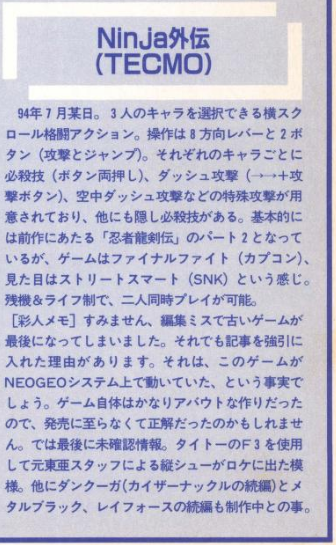 NinJa外伝
(TECMO)
94年7月某日。3人のキャラを選択できる横スク
ロール格闘アクション。操作は8方向レバーと2ボ
タン（攻撃とジャンプ）。それぞれのキャラごとに
必殺技（ボタン両押し）、ダッシュ攻撃（→→+攻
撃ボタン）、空中ダッシュ攻撃などの特殊攻撃が用
意されており、他にも隠し必殺技がある。基本的に
は前作にあたる「忍者龍剣伝」のパート2となって
いるが、ゲームはファイナルファイト（カプコン）、
見た目はストリートスマート（SNK）という感じ。
残機&ライフ制で、二人同時プレイが可能。
［彩人メモ］すみません、編集ミスで古いゲームが
最後になってしまいました。それでも記事を強引に
入れた理由があります。それは、このゲームが
NEOGEOシステム上で動いていた、という事実で
しょう。ゲーム自体はかなりアバウトな作りだった
ので、発売に至らなくて正解だったのかもしれませ
ん。では最後に未確認情報。タイトーのF3を使用
して元東亜スタッフによる縦シューがロケに出た模
様。他にダンクーガ(カイザーナックルの続編)とメ
タルブラック、レイフォースの続編も制作中との事。